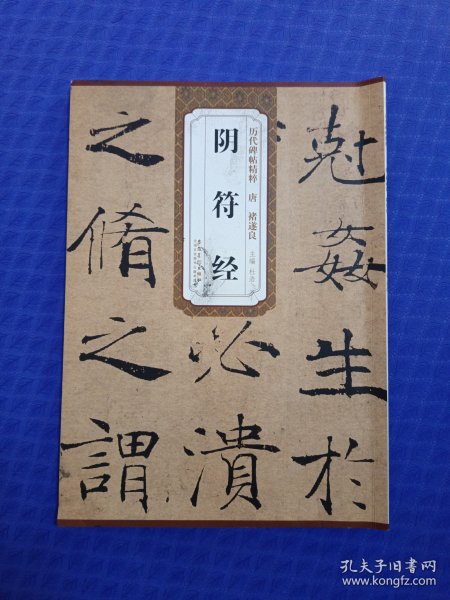 历代碑帖精粹 唐 褚遂良
主编 杜浩
阴符经
尅姦生於
必潰
之脩之謂
孔夫子旧书网
www.kongfz.com